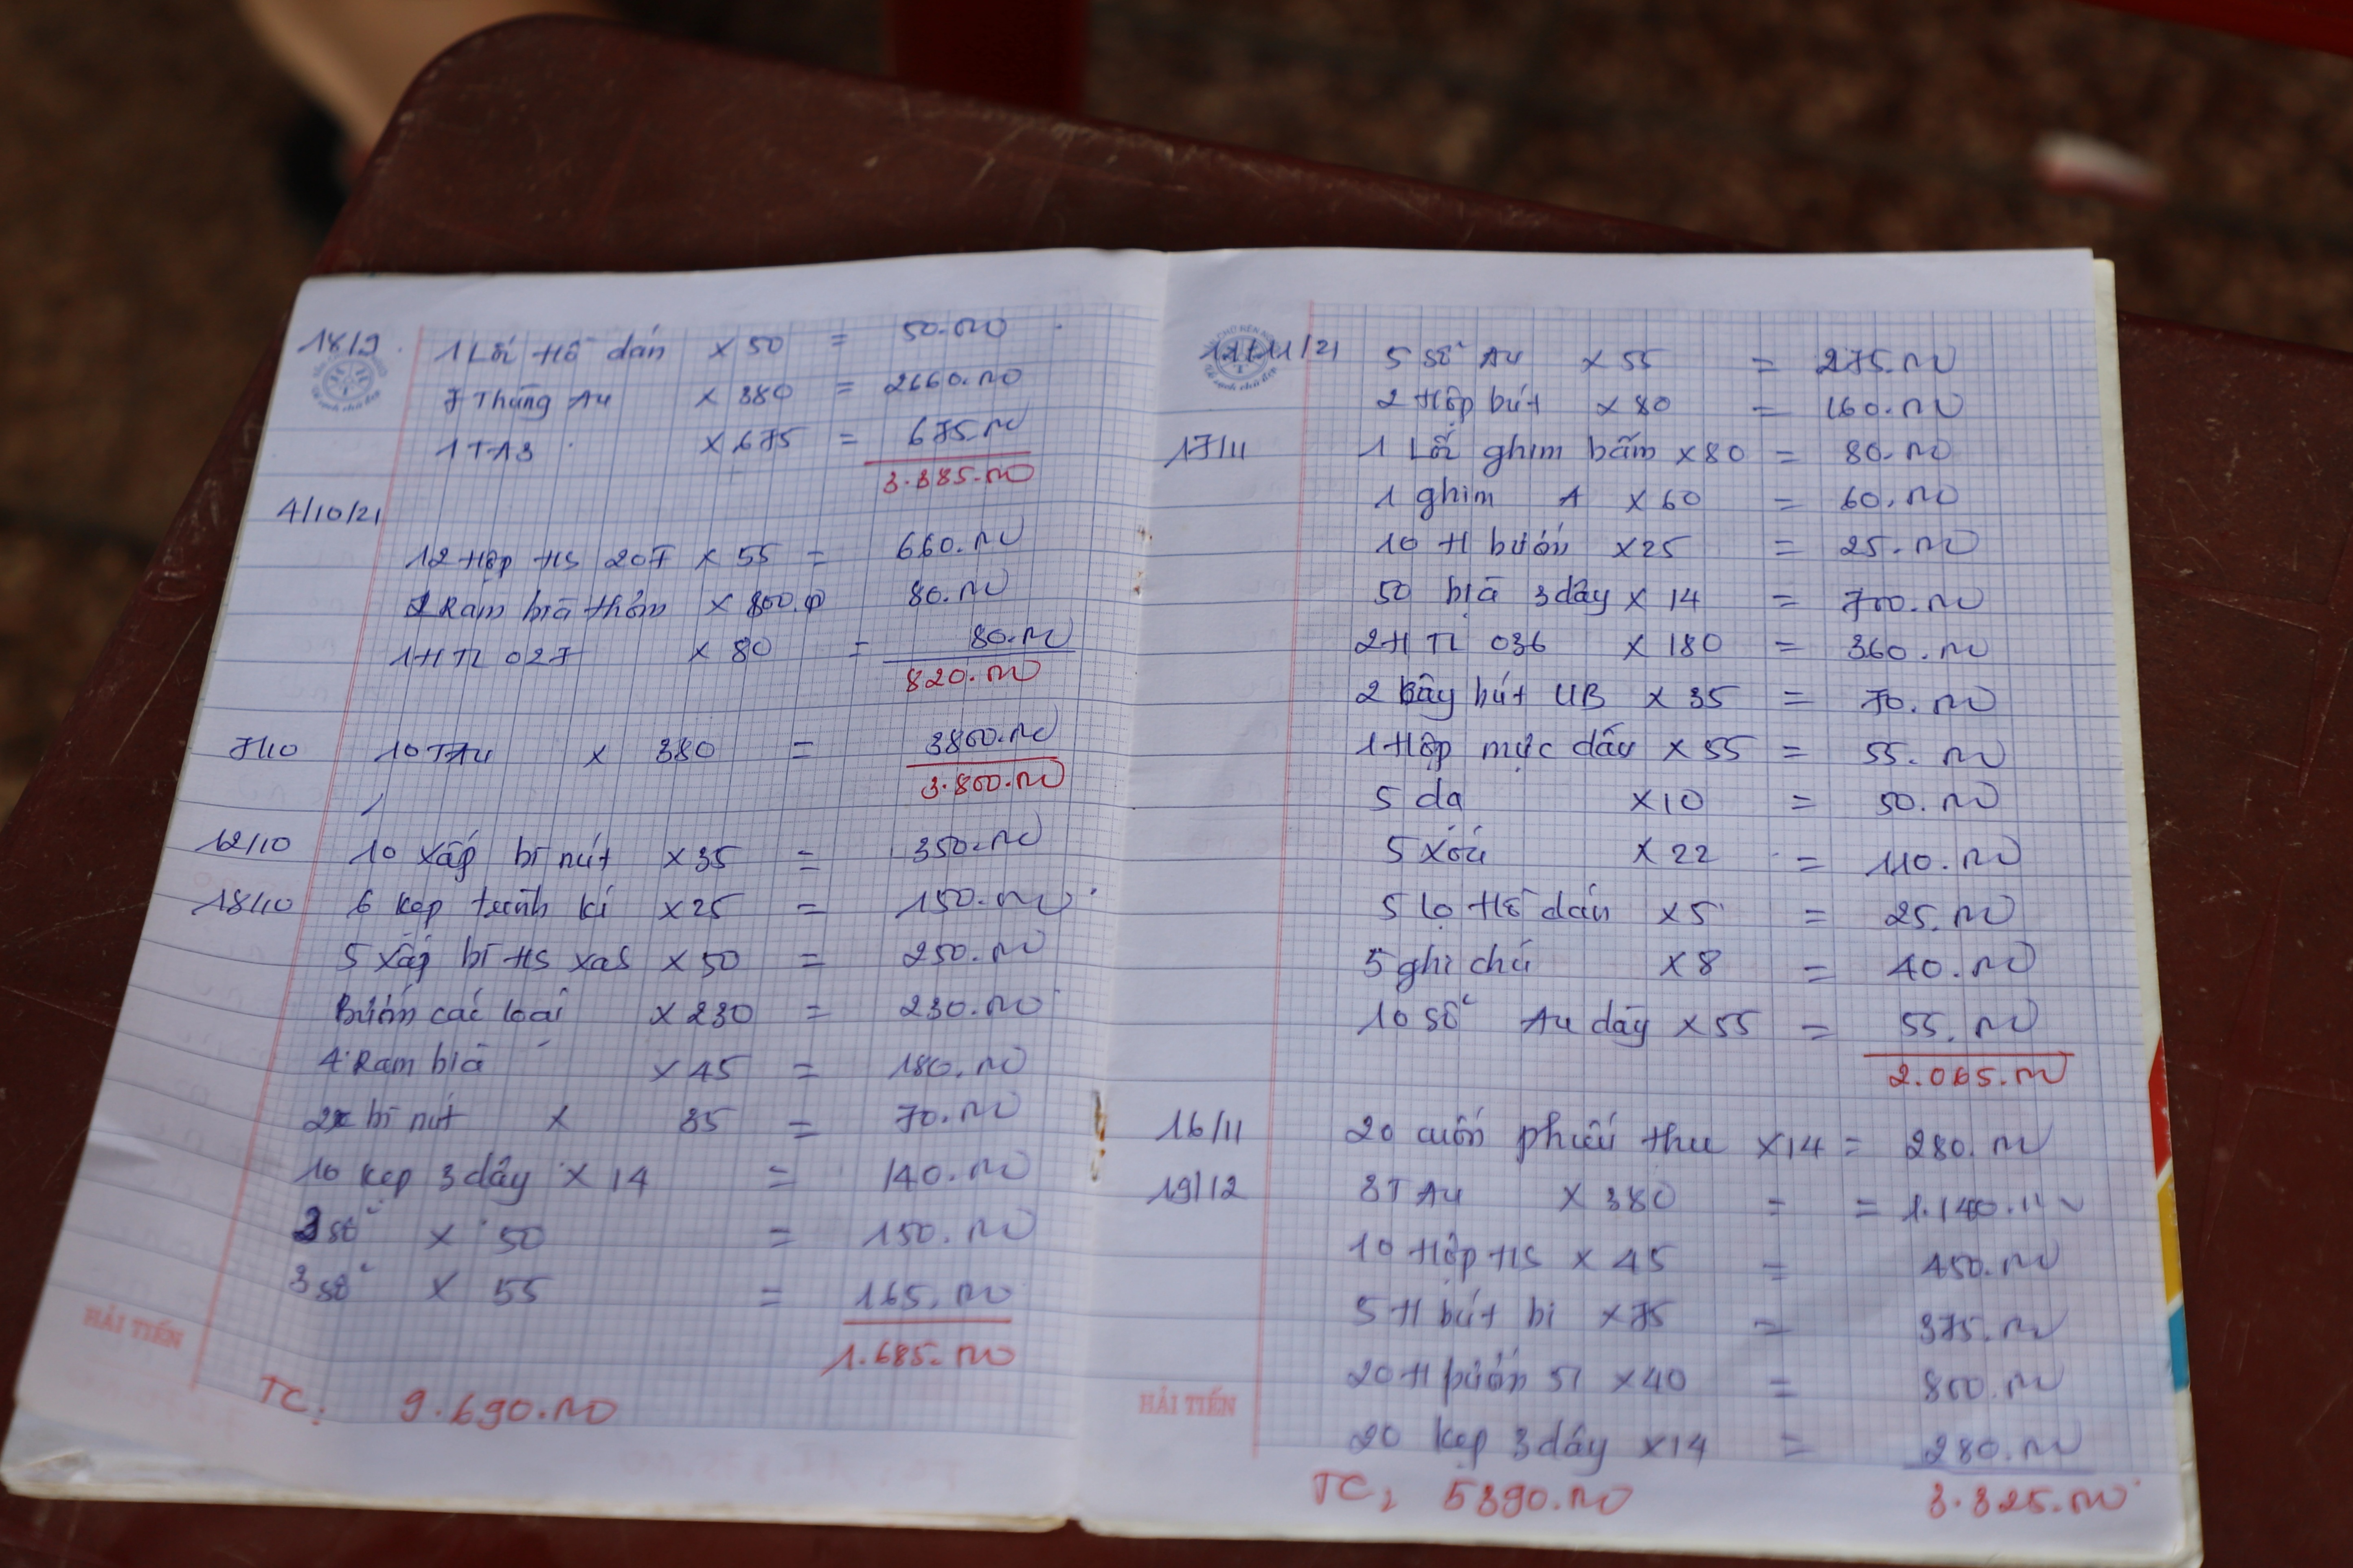 18/9 1 Lốc Hồ dán x 50 = 50.000
7 Thùng A4 x 380 = 2660.000
1 T A3 x 675 = 675.000
3.385.000
4/10/21
12 Hộp HS 207 x 55 = 660.000
1 Ram bìa thơm x 800.0 80.000
1 H TL 027 x 80 = 80.000
820.000
7/10 10 T A4 x 380 = 3800.000
3.800.000
12/10 10 xấp bì nút x 35 = 350.000
18/10 6 kẹp trình kí x 25 = 150.000
5 xấp bì HS x 50 = 250.000
Bướm các loại x 230 = 230.000
4 Ram bìa x 45 = 180.000
2x bì nút x 35 = 70.000
10 kẹp 3 dây x 14 = 140.000
3 sổ x 50 = 150.000
3 sổ x 55 = 165.000
1.685.000
HẢI TIẾN
TC: 9.690.000
12/11/21 5 sổ A4 x 55 = 275.000
2 Hộp bút x 80 = 160.000
17/11 1 Lốc ghim bấm x 80 = 80.000
1 ghim A x 60 = 60.000
10 H bướm x 25 = 25.000
50 bìa 3 dây x 14 = 700.000
2 H TL 036 x 180 = 360.000
2 cây bút UB x 35 = 70.000
1 Hộp mực dấu x 55 = 55.000
5 dạ x 10 = 50.000
5 xóa x 22 = 110.000
5 lọ Hồ dán x 5 = 25.000
5 ghi chú x 8 = 40.000
10 sổ A4 dày x 55 = 55.000
2.065.000
16/11 20 cuốn phiếu thu x 14 = 280.000
19/12 3 T A4 x 380 = = 1.140.000
10 Hộp HS x 45 = 450.000
5 H bút bi x 75 = 375.000
20 H bướm 51 x 40 = 800.000
20 kẹp 3 dây x 14 = 280.000
HẢI TIẾN
TC: 5390.000 3.325.000